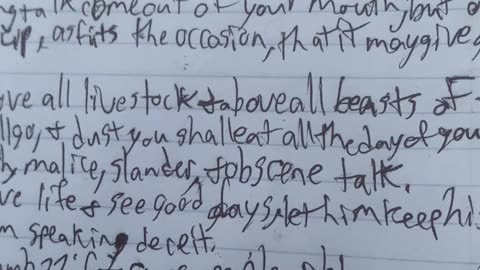 talk come out of your mouth, but
up, as fits the occasion, that it may give
ve all livestock & above all beasts of
ll go, & dust you shall eat all the day of you
malice, slander, & obscene talk.
ve life & see good days, let him keep his
m speaking deceit.